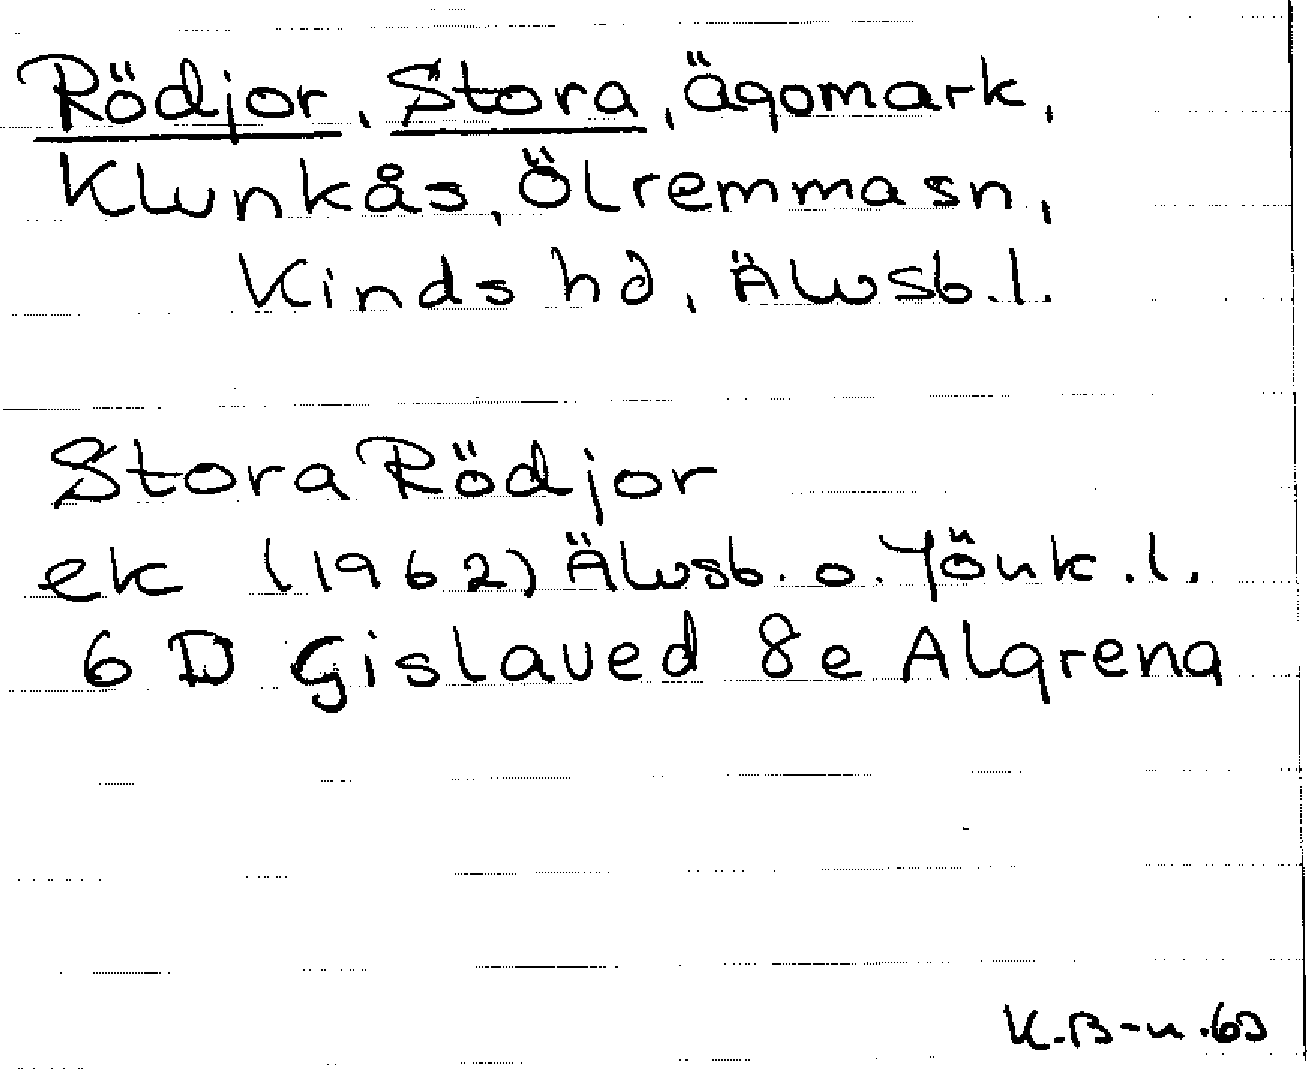 Rödjor, Stora, Ägomark,
Klunkås, Ölremma sn,
Kinds hd, Älvsb. l.
Stora Rödjor
ek (1962) Älvsb. o. Jönk. l.
6 D Gislaved 8e Algrena
K.B-n.63